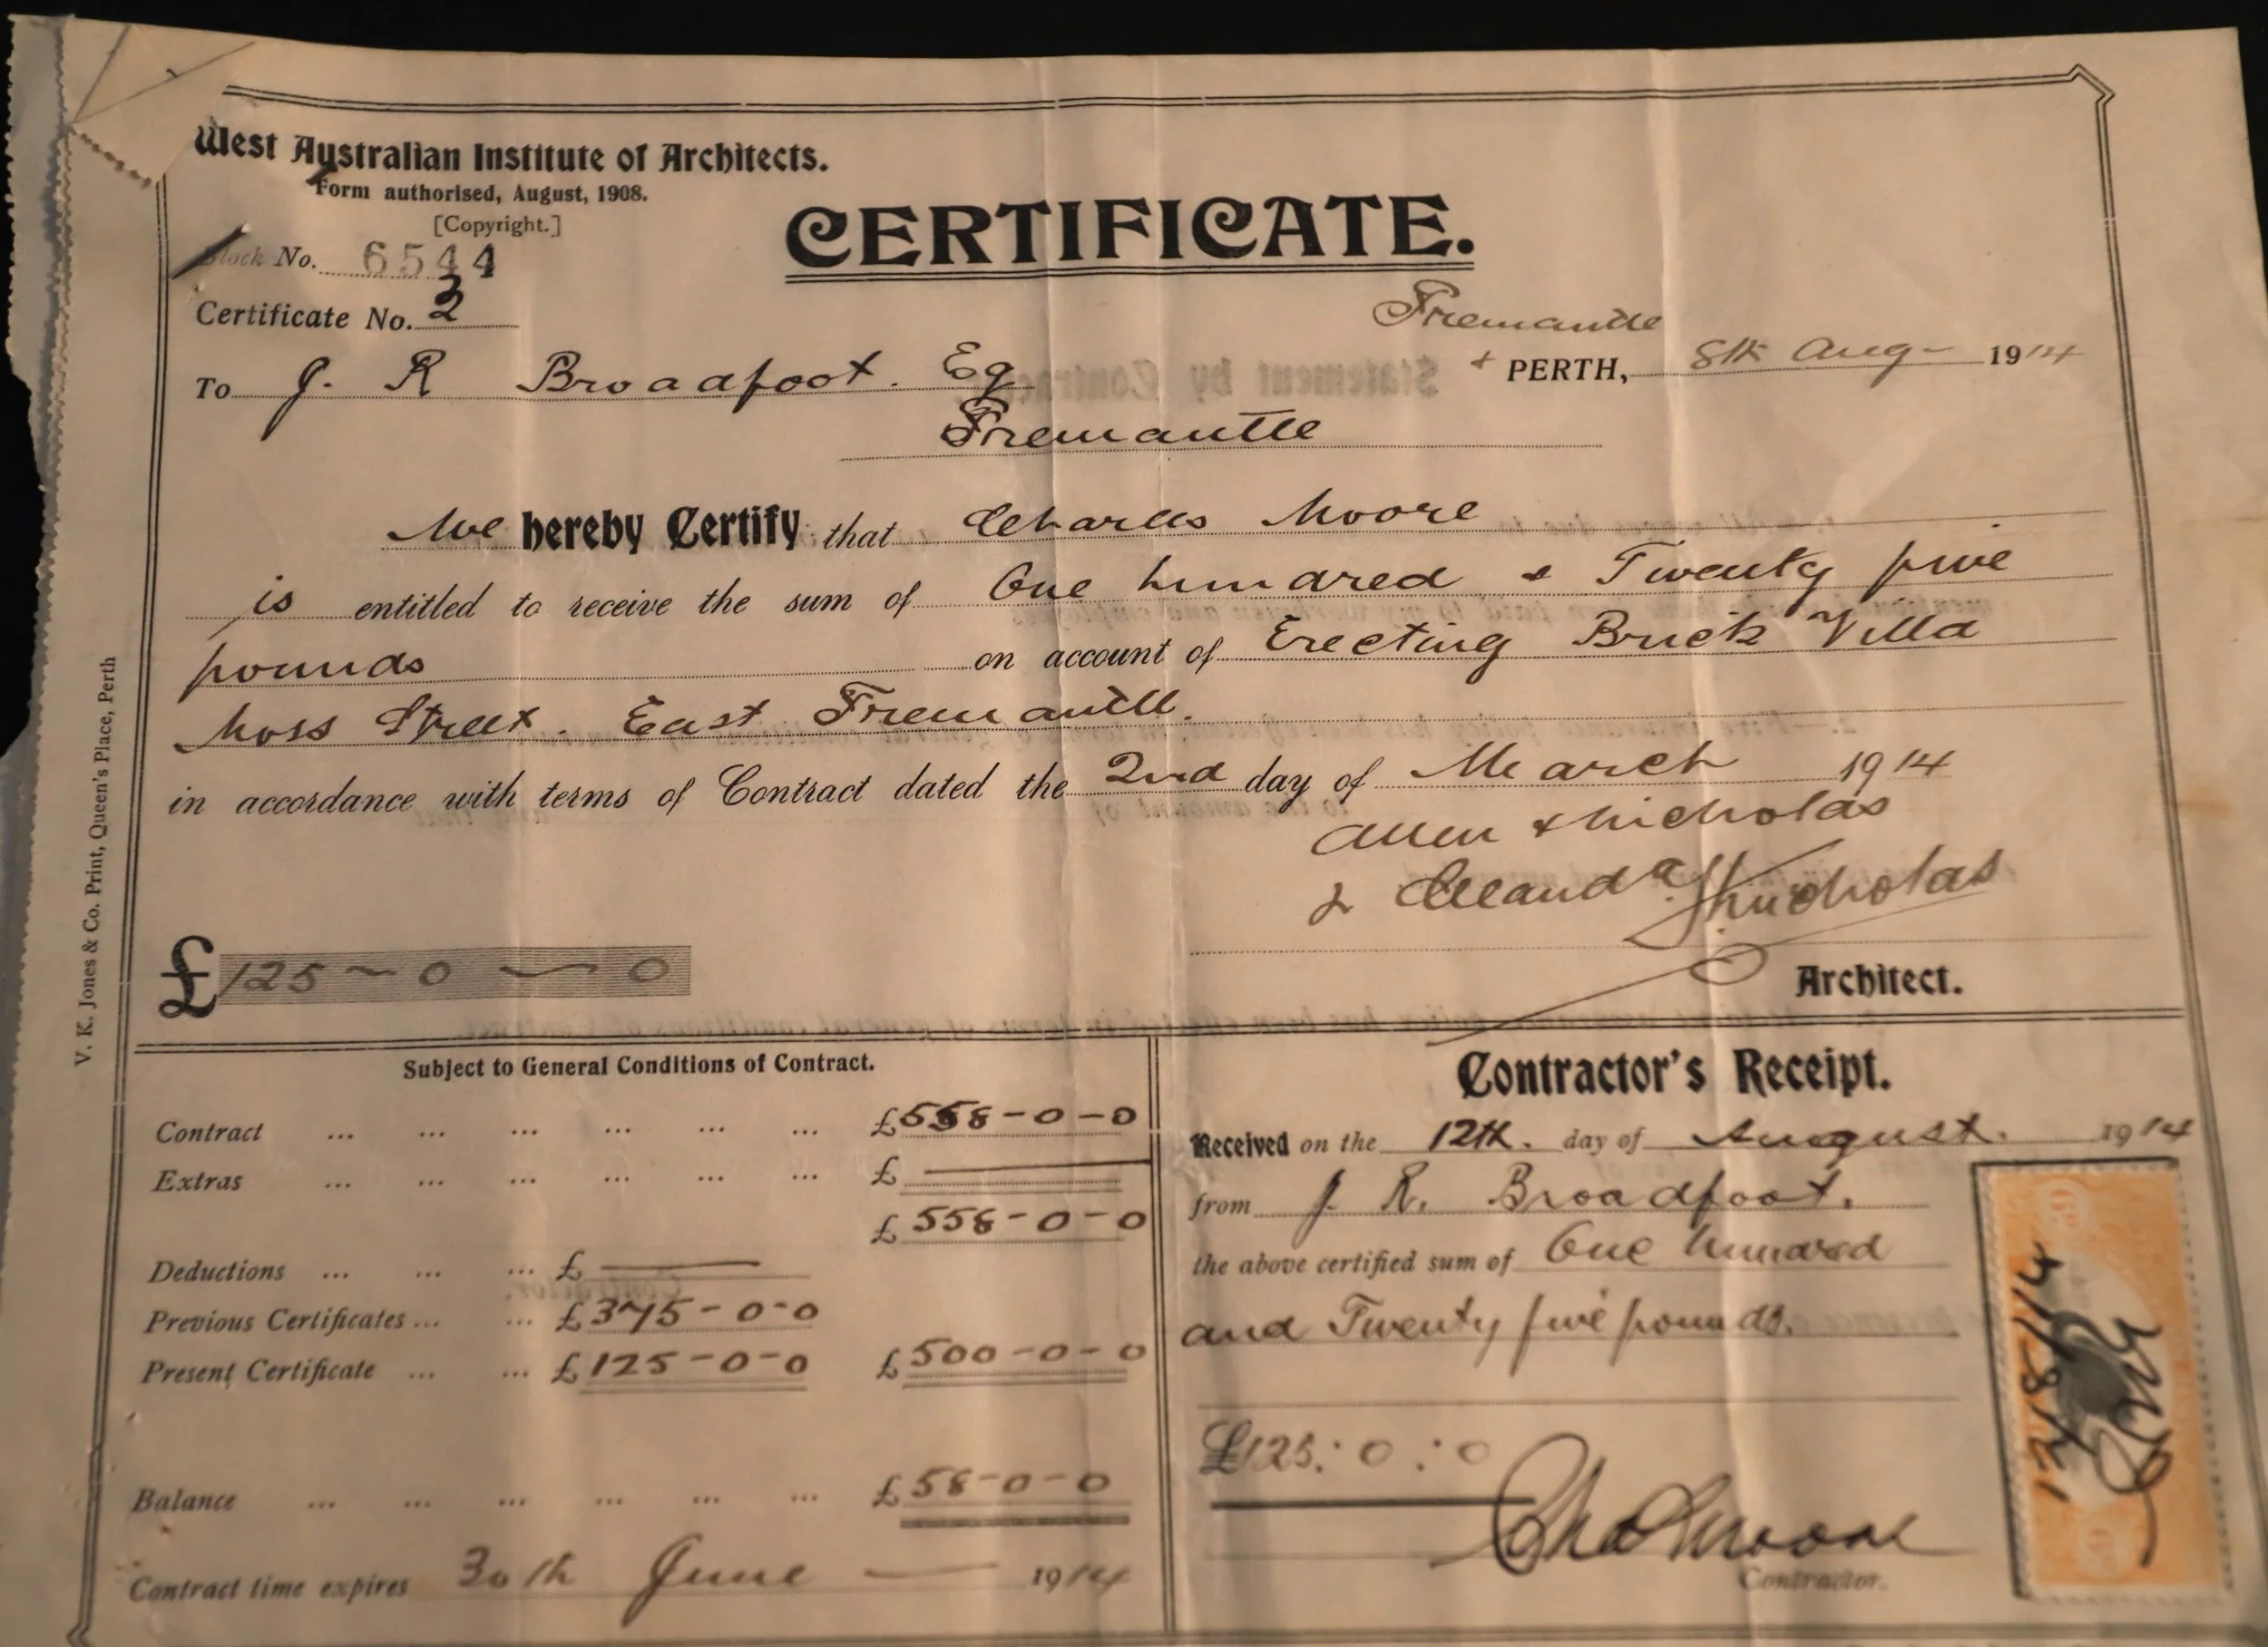 West Australian Institute of Architects.
Form authorised, August, 1908.
[Copyright.]
Block No. 6544
CERTIFICATE.
Certificate No. 3
Fremantle
+ PERTH, 8th Aug - 1914
To J. R Broadfoot. Eq
Fremantle
We hereby Certify that Charles Moore
is entitled to receive the sum of One hundred & Twenty five
pounds on account of Erecting Brick Villa
Moss Street. East Fremantle.
in accordance with terms of Contract dated the 2nd day of March 1914
Allen & Nicholas
Nicholas
£125 - 0 - 0
Architect.
V. K. Jones & Co. Print, Queen's Place, Perth
Subject to General Conditions of Contract.
Contract ... ... ... ... ... ... £558-0-0
Extras ... ... ... ... ... ... £
£558-0-0
Deductions ... ... ... £
Previous Certificates ... ... £375-0-0
Present Certificate ... ... £125-0-0 £500-0-0
Balance ... ... ... ... ... ... £58-0-0
Contract time expires 30th June 1914
Contractor's Receipt.
Received on the 12th. day of August. 1914
from J. R. Broadfoot.
the above certified sum of One hundred
and Twenty five pounds.
£125:0:0
Chas Moore
Contractor.
12/8/14